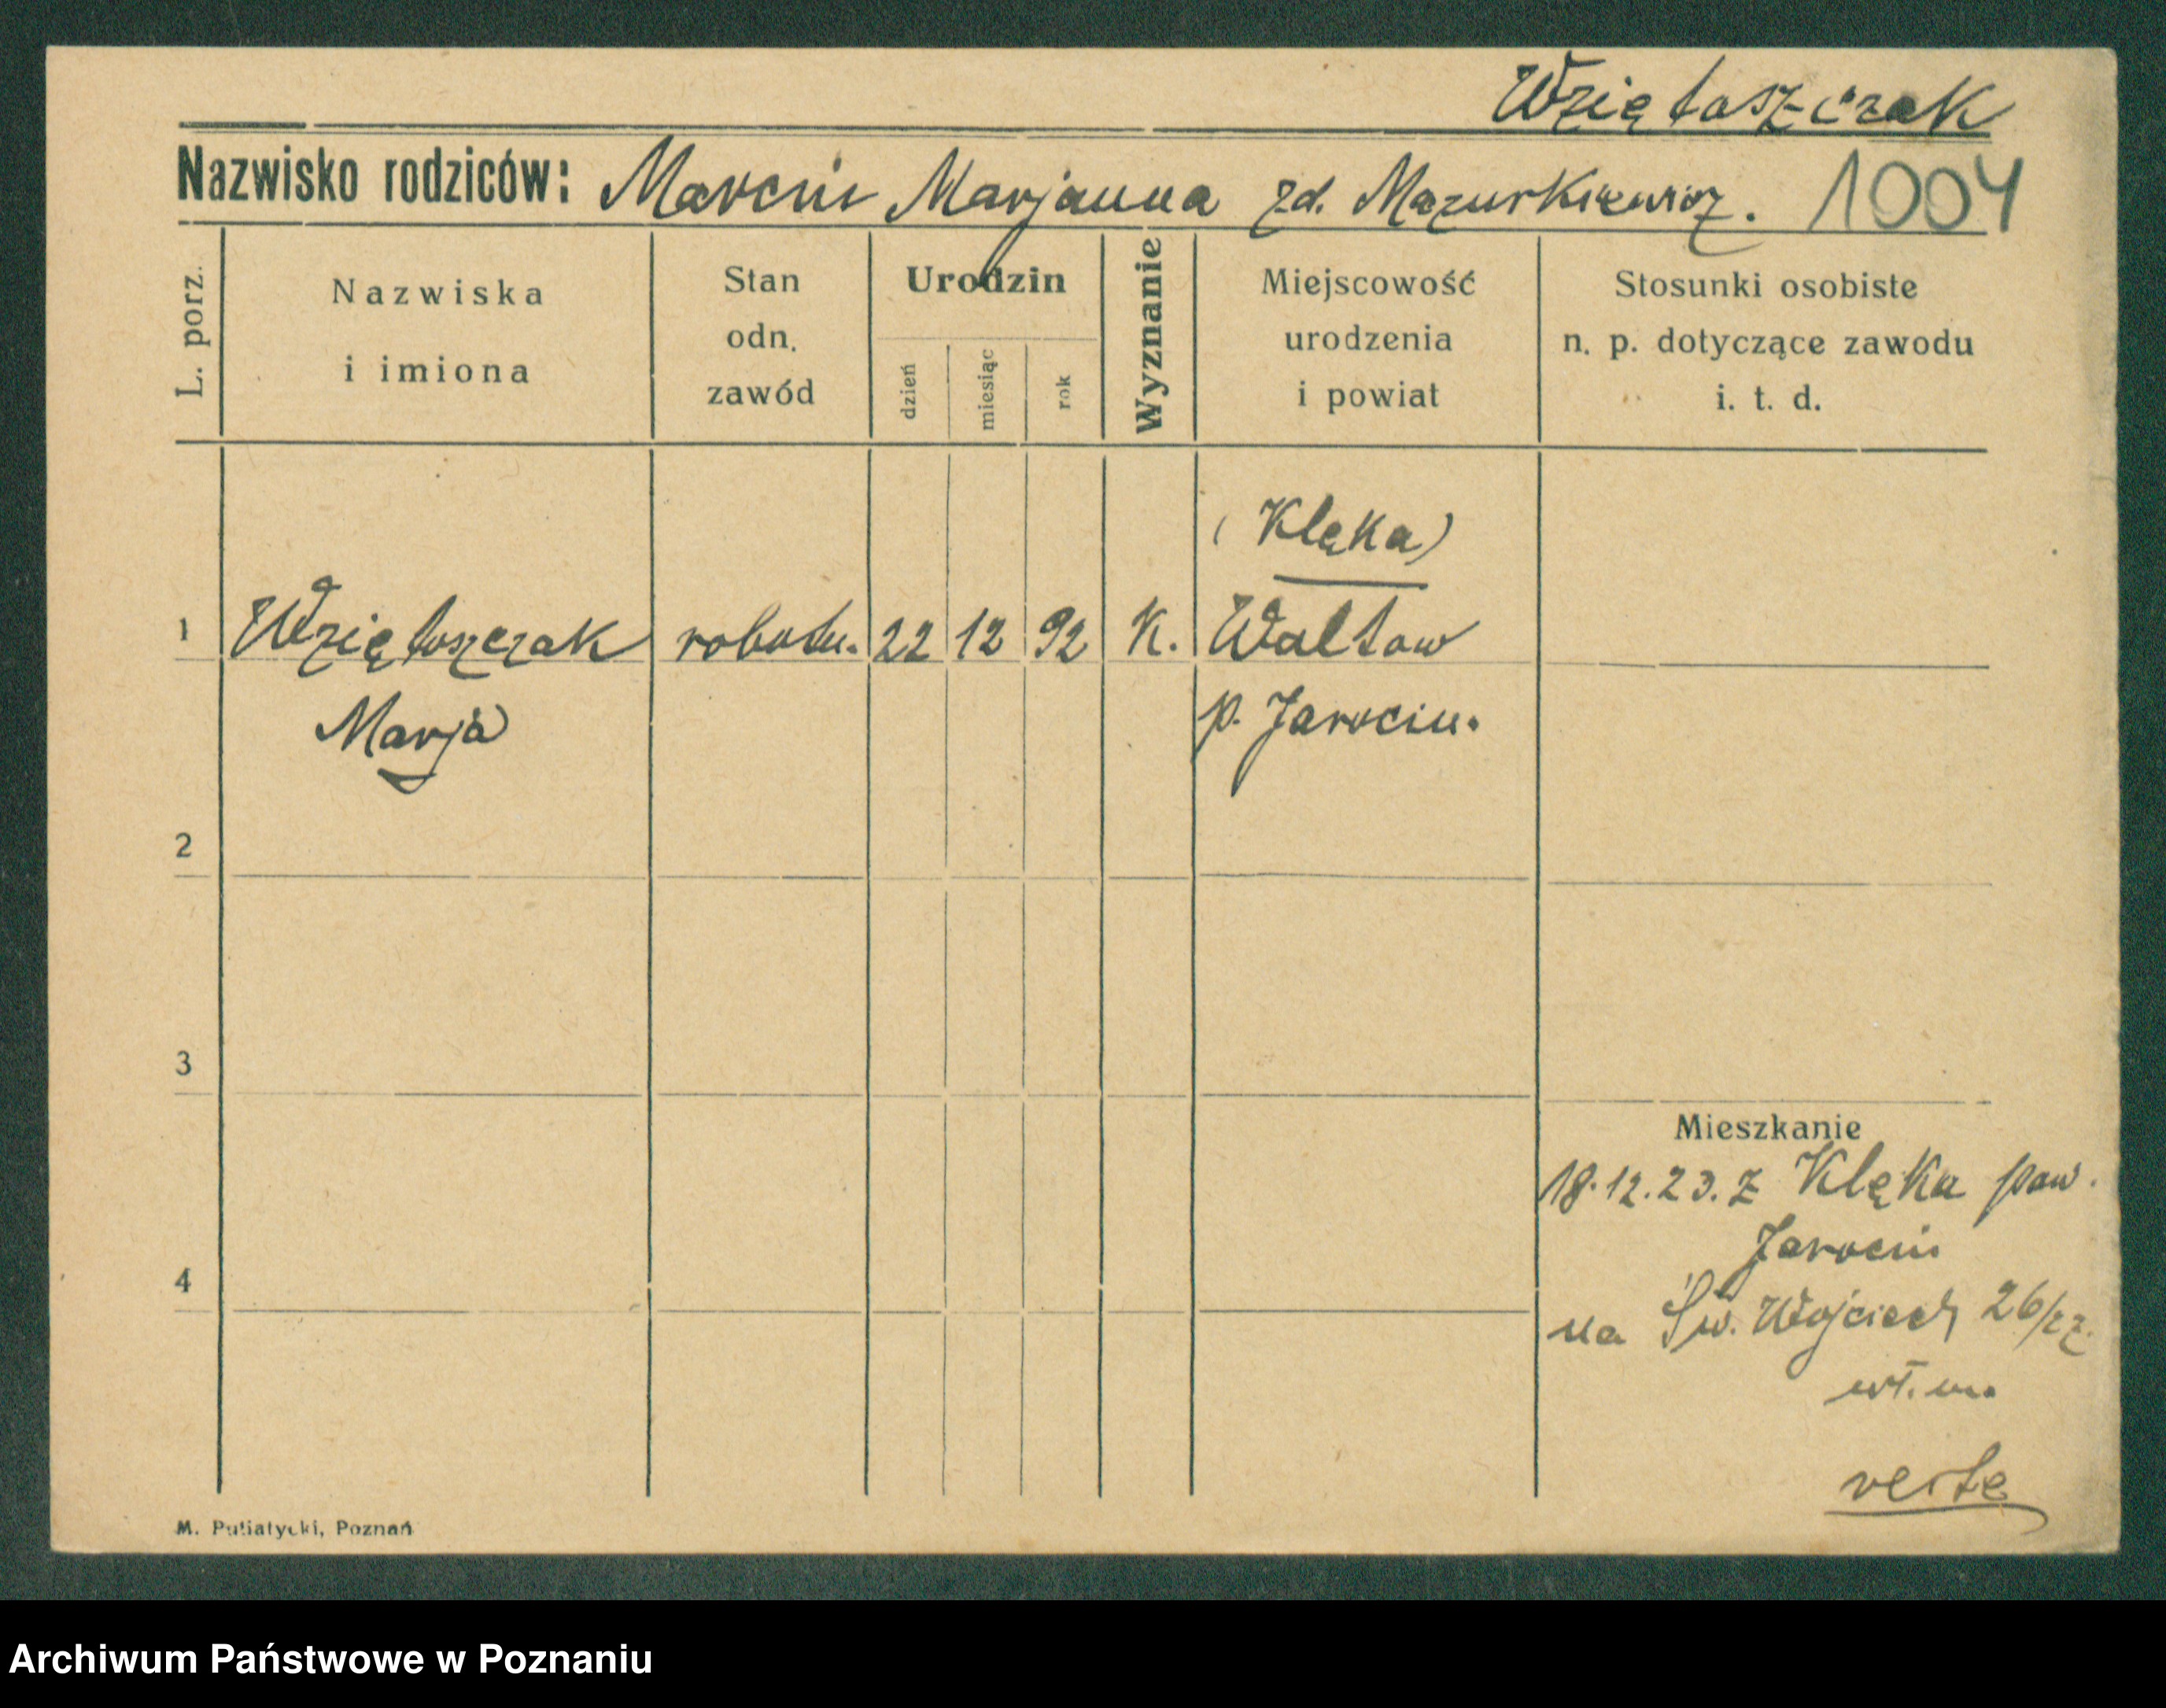 Wziętoszczak
Nazwisko rodziców: Marcin Marjanna zd. Mazurkiewicz. 1004
L. porz.
Nazwiska
i imiona
Stan
odn.
zawód
Urodzin
dzień
miesiąc
rok
Wyznanie
Miejscowość
urodzenia
i powiat
Stosunki osobiste
n. p. dotyczące zawodu
i. t. d.
(Klęka)
1 Wziętoszczak robotn. 22 12 92 K. Waltow
Marja p. Jarocin.
2
3
Mieszkanie
18.12.23. z Klęka pow.
Jarocin
4
na Św. Wojciech 26/27.
verte
M. Putiatycki, Poznań
Archiwum Państwowe w Poznaniu